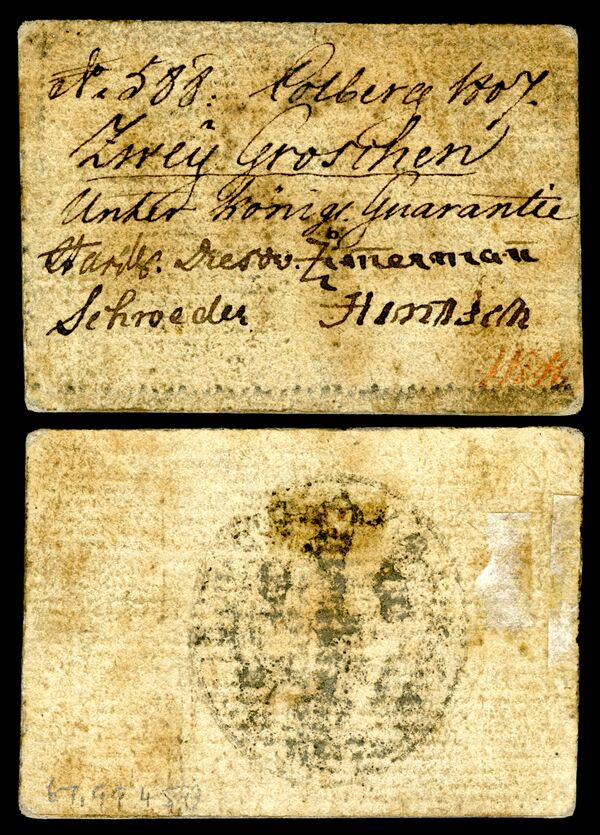 No. 588. Colberg 1807.
Zwey Groschen
Unter Königl. Guarantie
Dresow. Zimmerman
Schroeder Hentsch
67,99450